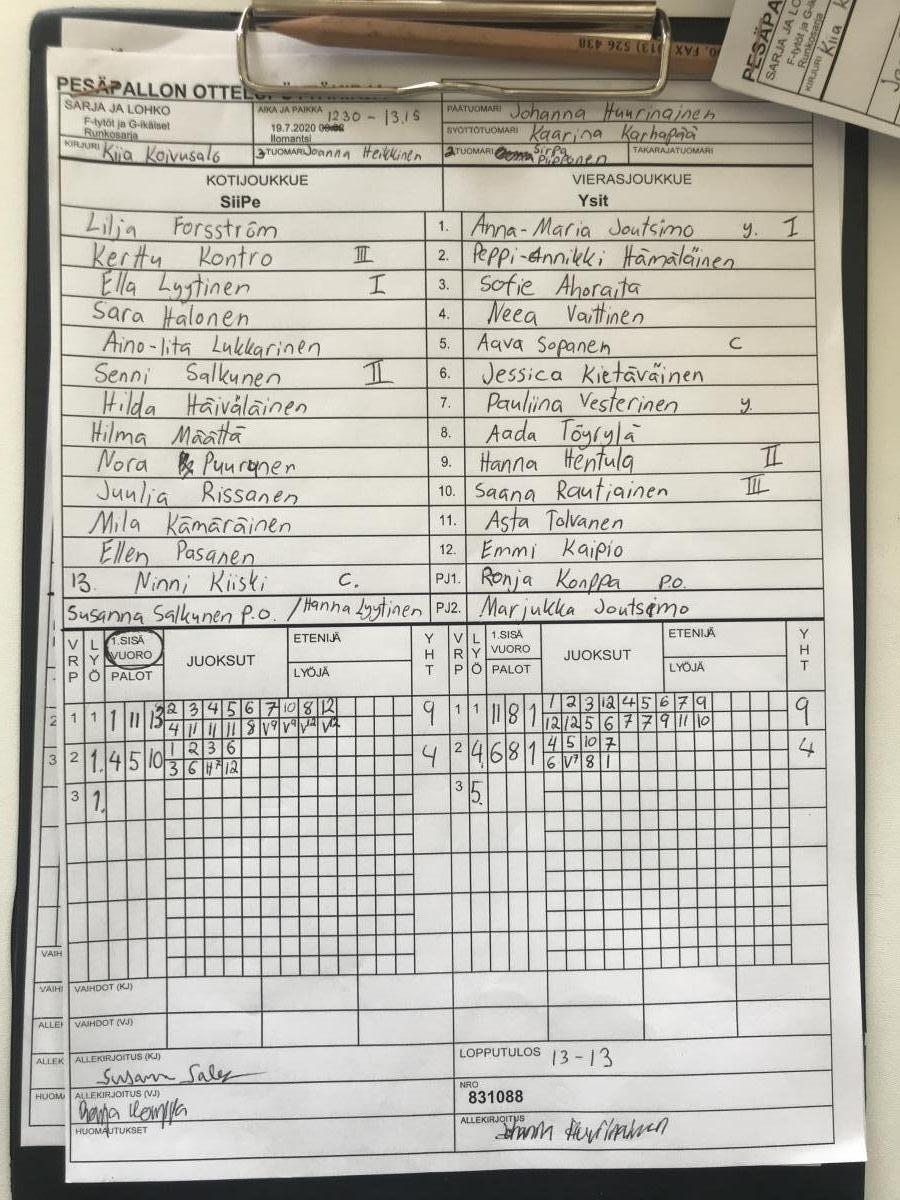 PESÄPALLON OTTELUPÖYTÄKIRJA
SARJA JA LOHKO
F-tytöt ja G-ikäiset
Runkosarja
AIKA JA PAIKKA 1230 - 13.15
19.7.2020
Ilomantsi
PÄÄTUOMARI Johanna Huurinainen
SYÖTTÖTUOMARI Kaarina Karhapää
KIRJURI Kiia Koivusalo
3 TUOMARI Joanna Heikkinen
2 TUOMARI Sirpa Piipponen
TAKARAJATUOMARI
KOTIJOUKKUE VIERASJOUKKUE
SiiPe Ysit
Lilja Forsström 1. Anna-Maria Joutsimo y. I
Kerttu Kontro III 2. Peppi-Annikki Hämäläinen
Ella Lyytinen I 3. Sofie Ahoraita
Sara Halonen 4. Neea Vaittinen
Aino-Iita Lukkarinen 5. Aava Sopanen C
Senni Salkunen II 6. Jessica Kietäväinen
Hilda Häiväläinen 7. Pauliina Vesterinen y.
Hilma Määttä 8. Aada Töyrylä
Nora Puurunen 9. Hanna Hentula II
Juulia Rissanen 10. Saana Rautiainen III
Mila Kämäräinen 11. Asta Tolvanen
Ellen Pasanen 12. Emmi Kaipio
13. Ninni Kiiski C. PJ1. Ronja Konppa P.O.
Susanna Salkunen P.O. / Hanna Lyytinen PJ2. Marjukka Joutsimo
VRP LYÖ 1.SISÄ VUORO PALOT JUOKSUT ETENIJÄ LYÖJÄ YHT VRP LYÖ 1.SISÄ VUORO PALOT JUOKSUT ETENIJÄ LYÖJÄ YHT
1 1 1 11 13 2 3 4 5 6 7 10 8 12 9 1 1 11 8 1 1 2 3 12 4 5 6 7 9 9
4 11 11 11 8 V9 V9 V12 V12 12 12 5 6 7 7 9 11 10
2 1. 4 5 10 1 2 3 6 4 2 4. 6 8 1 4 5 10 7 4
3 6 12 6 V7 8 1
3 1. 3 5.
VAIHDOT (KJ)
VAIHDOT (VJ)
ALLEKIRJOITUS (KJ) LOPPUTULOS 13-13
ALLEKIRJOITUS (VJ) NRO
831088
HUOMAUTUKSET ALLEKIRJOITUS